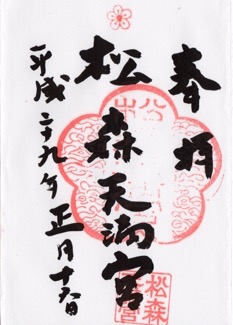 奉拝
松森天満宮
平成二十九年正月十六日
松森